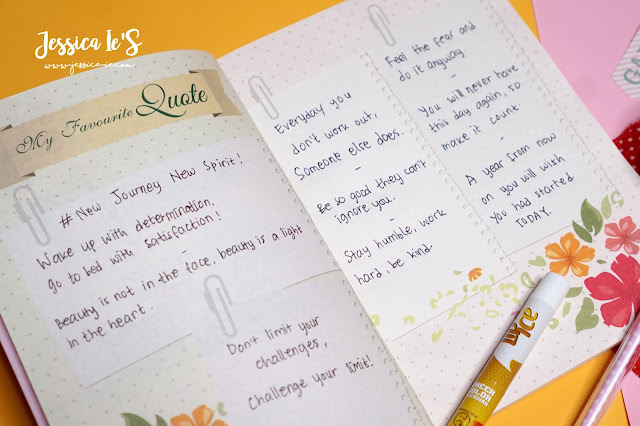 Jessica Ie'S
My Favourite Quote
#New Journey New Spirit!
Wake up with determination,
go to bed with satisfaction!
-
Beauty is not in the face, beauty is a light
in the heart.
Don't limit your
challenges,
challenge your limit!
Everyday you
don't work out,
Someone else does.
-
Be so good they can't
ignore you.
-
Stay humble, work
hard, be kind.
Feel the fear and
do it anyway.
-
You will never have
this day again, so
make it count.
-
A year from now
on you will wish
You had started
TODAY.